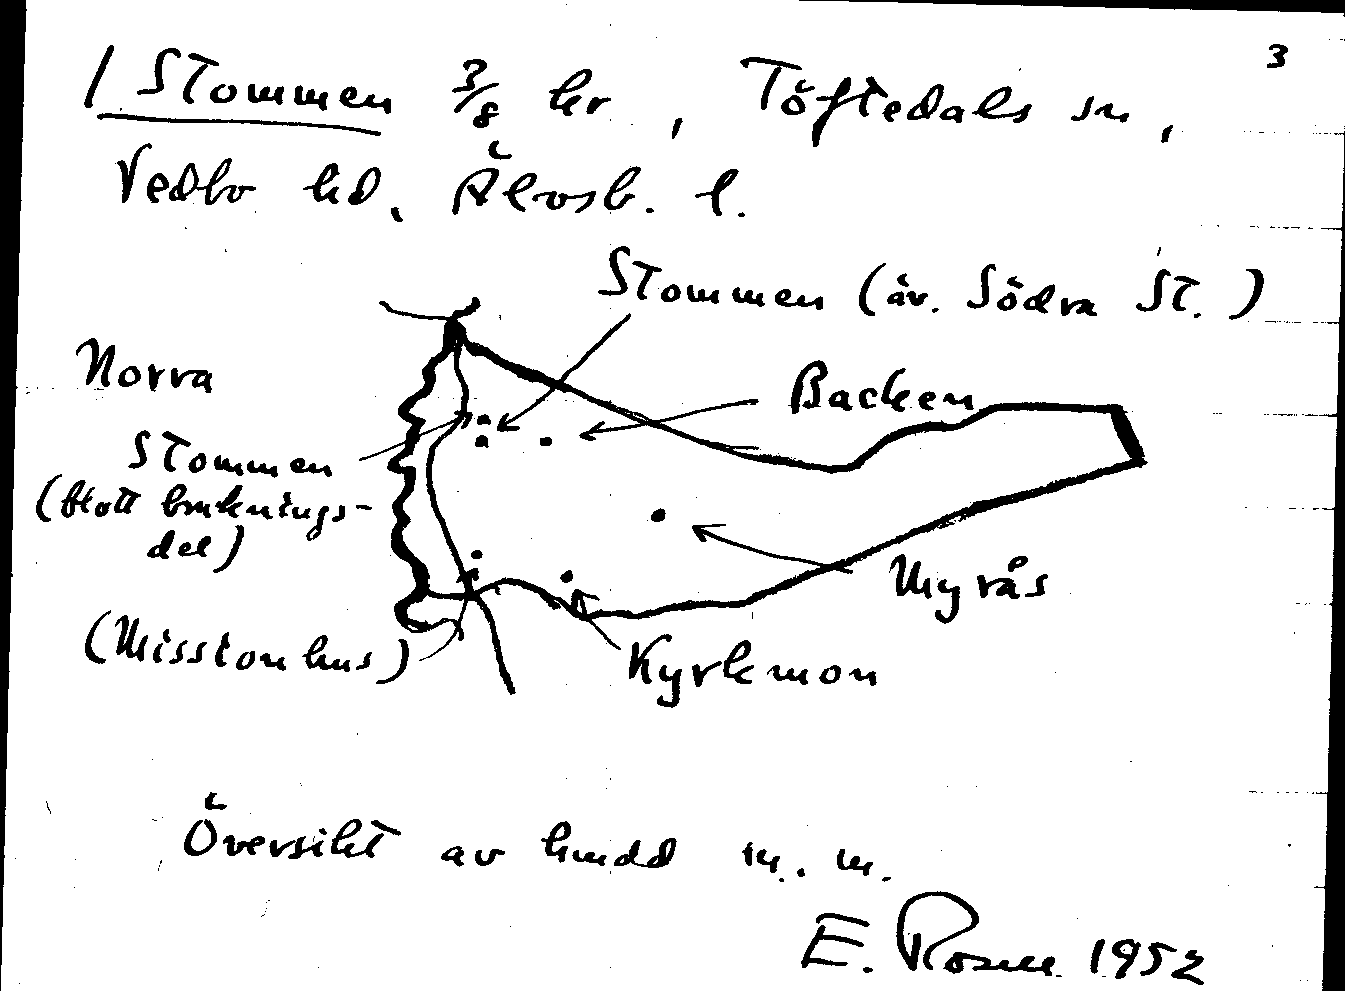 3
/ Stommen 3/8 hr, Töftedals sn,
Vedbo hd, Älvsb. l.
Stommen (äv. Södra St.)
Norra
Backen
Stommen
(blott bruknings-
del)
Myrås
(Missionhus)
Kyrkmon
Översikt av
m. m.
E. Rosell 1952